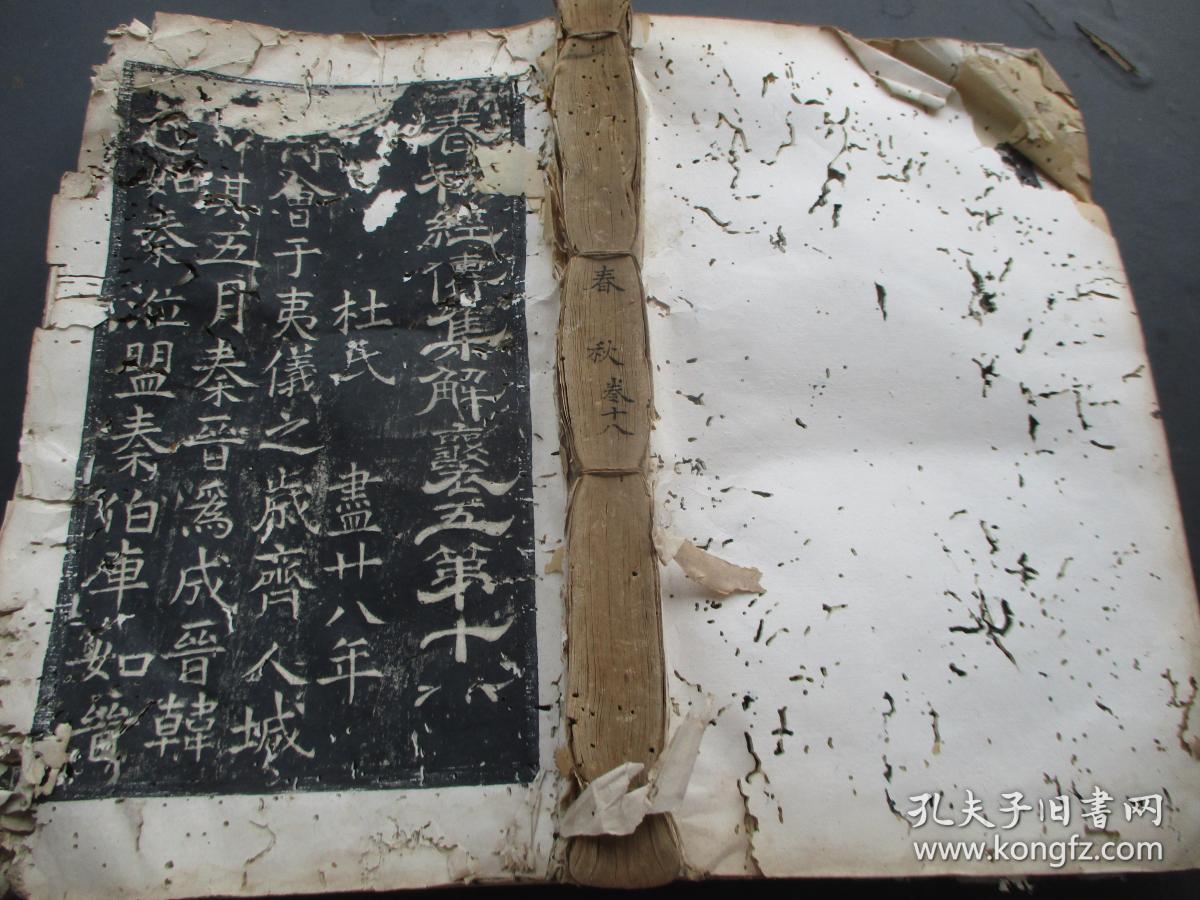 春秋經傳集解襄五第十八
杜氏 盡廿八年
會于夷儀之歲齊人城
其五月秦晉爲成晉韓
起如秦涖盟秦伯車如晉
春秋 卷十八
孔夫子旧书网
www.kongfz.com